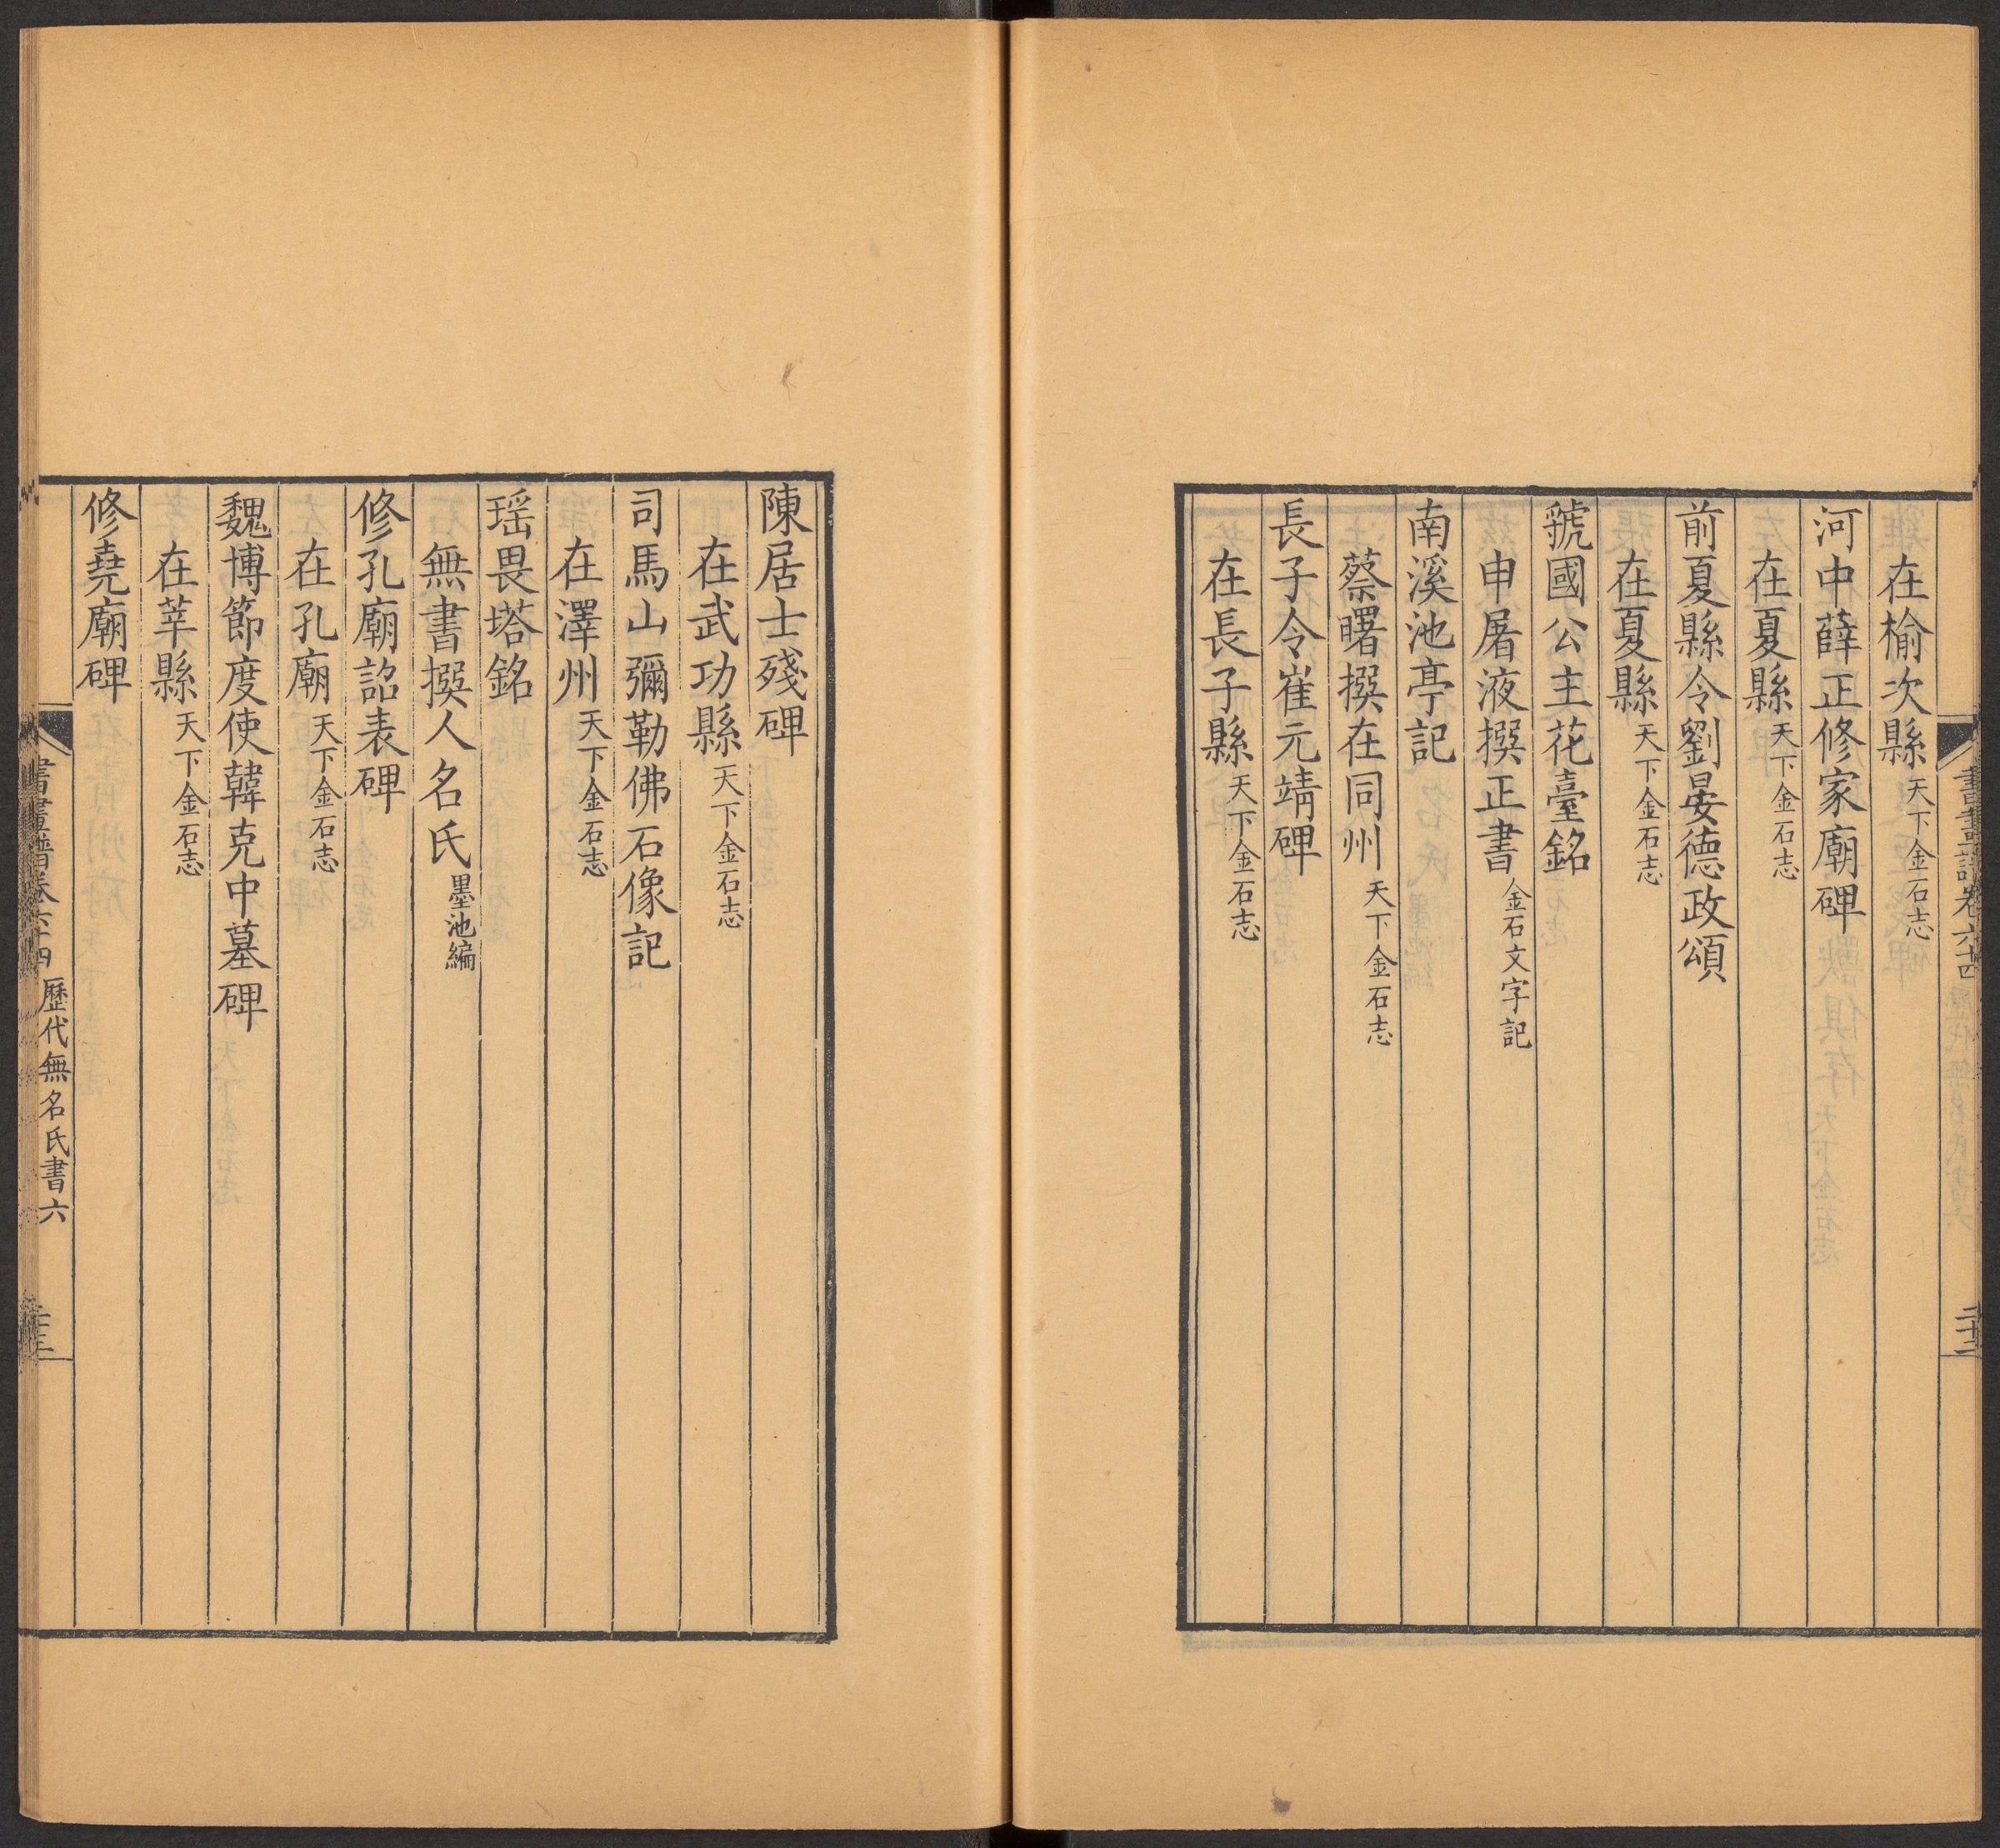 書畫譜卷六十四
二十二
在榆次縣天下金石志
河中薛正修家廟碑
在夏縣天下金石志
前夏縣令劉晏德政頌
在夏縣天下金石志
虢國公主花臺銘
申屠液撰正書金石文字記
南溪池亭記
蔡曙撰在同州天下金石志
長子令崔元靖碑
在長子縣天下金石志
陳居士殘碑
在武功縣天下金石志
司馬山彌勒佛石像記
在澤州天下金石志
瑶畏塔銘
無書撰人名氏墨池編
修孔廟詔表碑
在孔廟天下金石志
魏博節度使韓克中墓碑
在莘縣天下金石志
修堯廟碑
書畫譜卷六十四 歷代無名氏書六